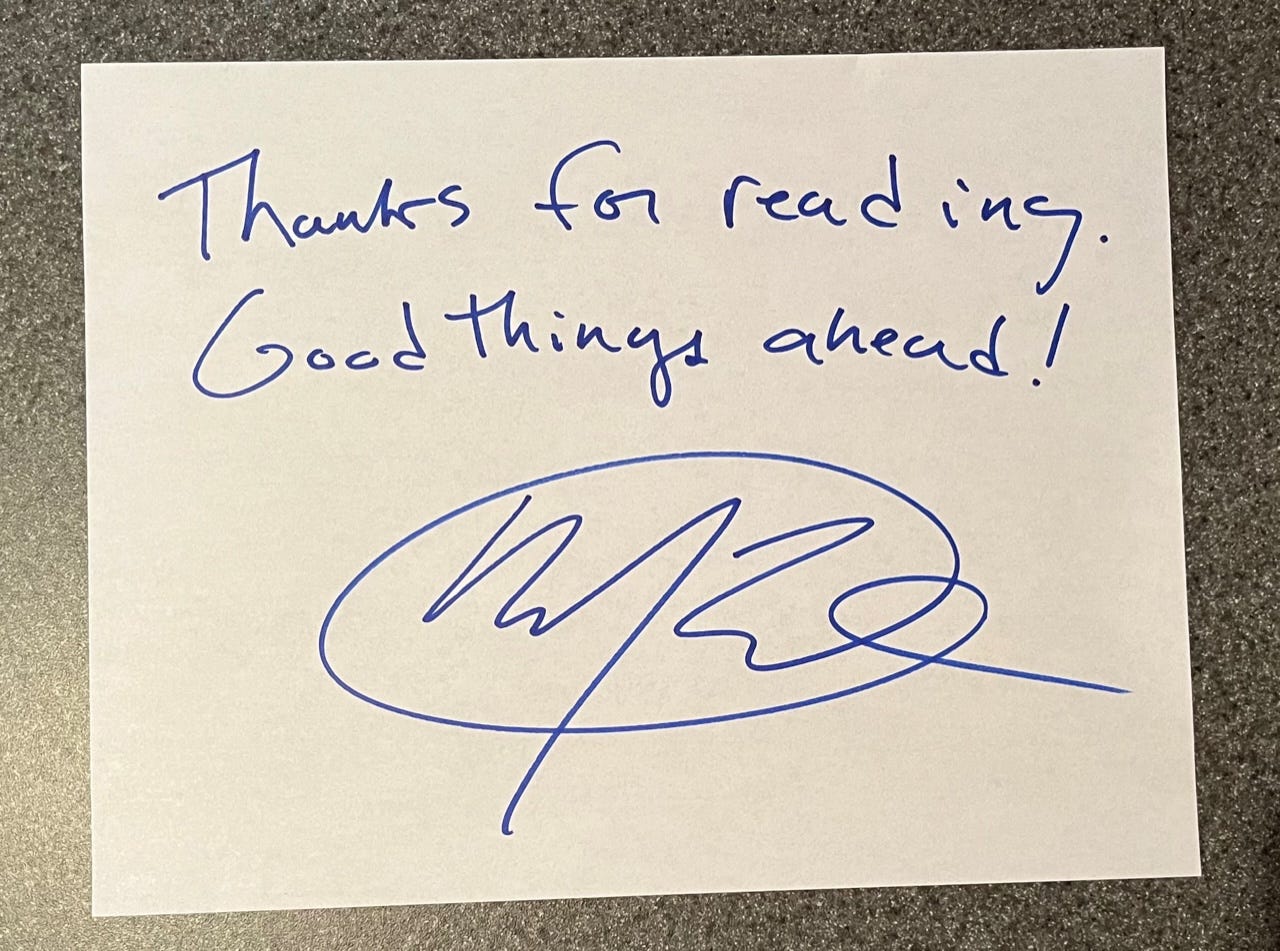 Thanks for reading.
Good things ahead!